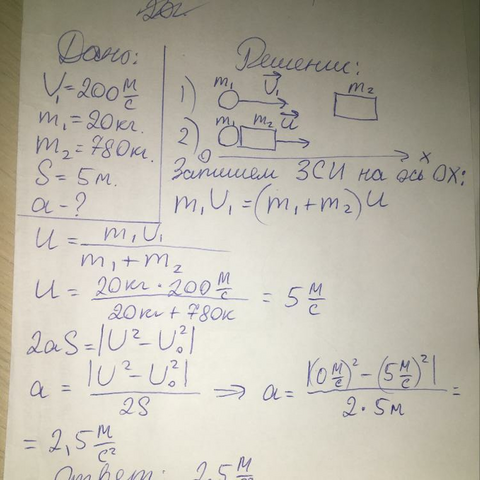 Дано:
V₁ = 200 м/с
m₁ = 20 кг.
m₂ = 780 кг.
S = 5 м.
a - ?
Решение:
1) m₁ V₁ m₂
2) m₁ m₂ U
0 x
Запишем ЗСИ на ось OX:
m₁U₁ = (m₁ + m₂)U
U = m₁U₁ / m₁ + m₂
U = 20кг · 200 м/с / 20кг + 780к = 5 м/с
2aS = |U² - U₀²|
a = |U² - U₀²| / 2S ⇒ a = |(0 м/с)² - (5 м/с)²| / 2 · 5м =
= 2,5 м/с²
Ответ: 2,5 м